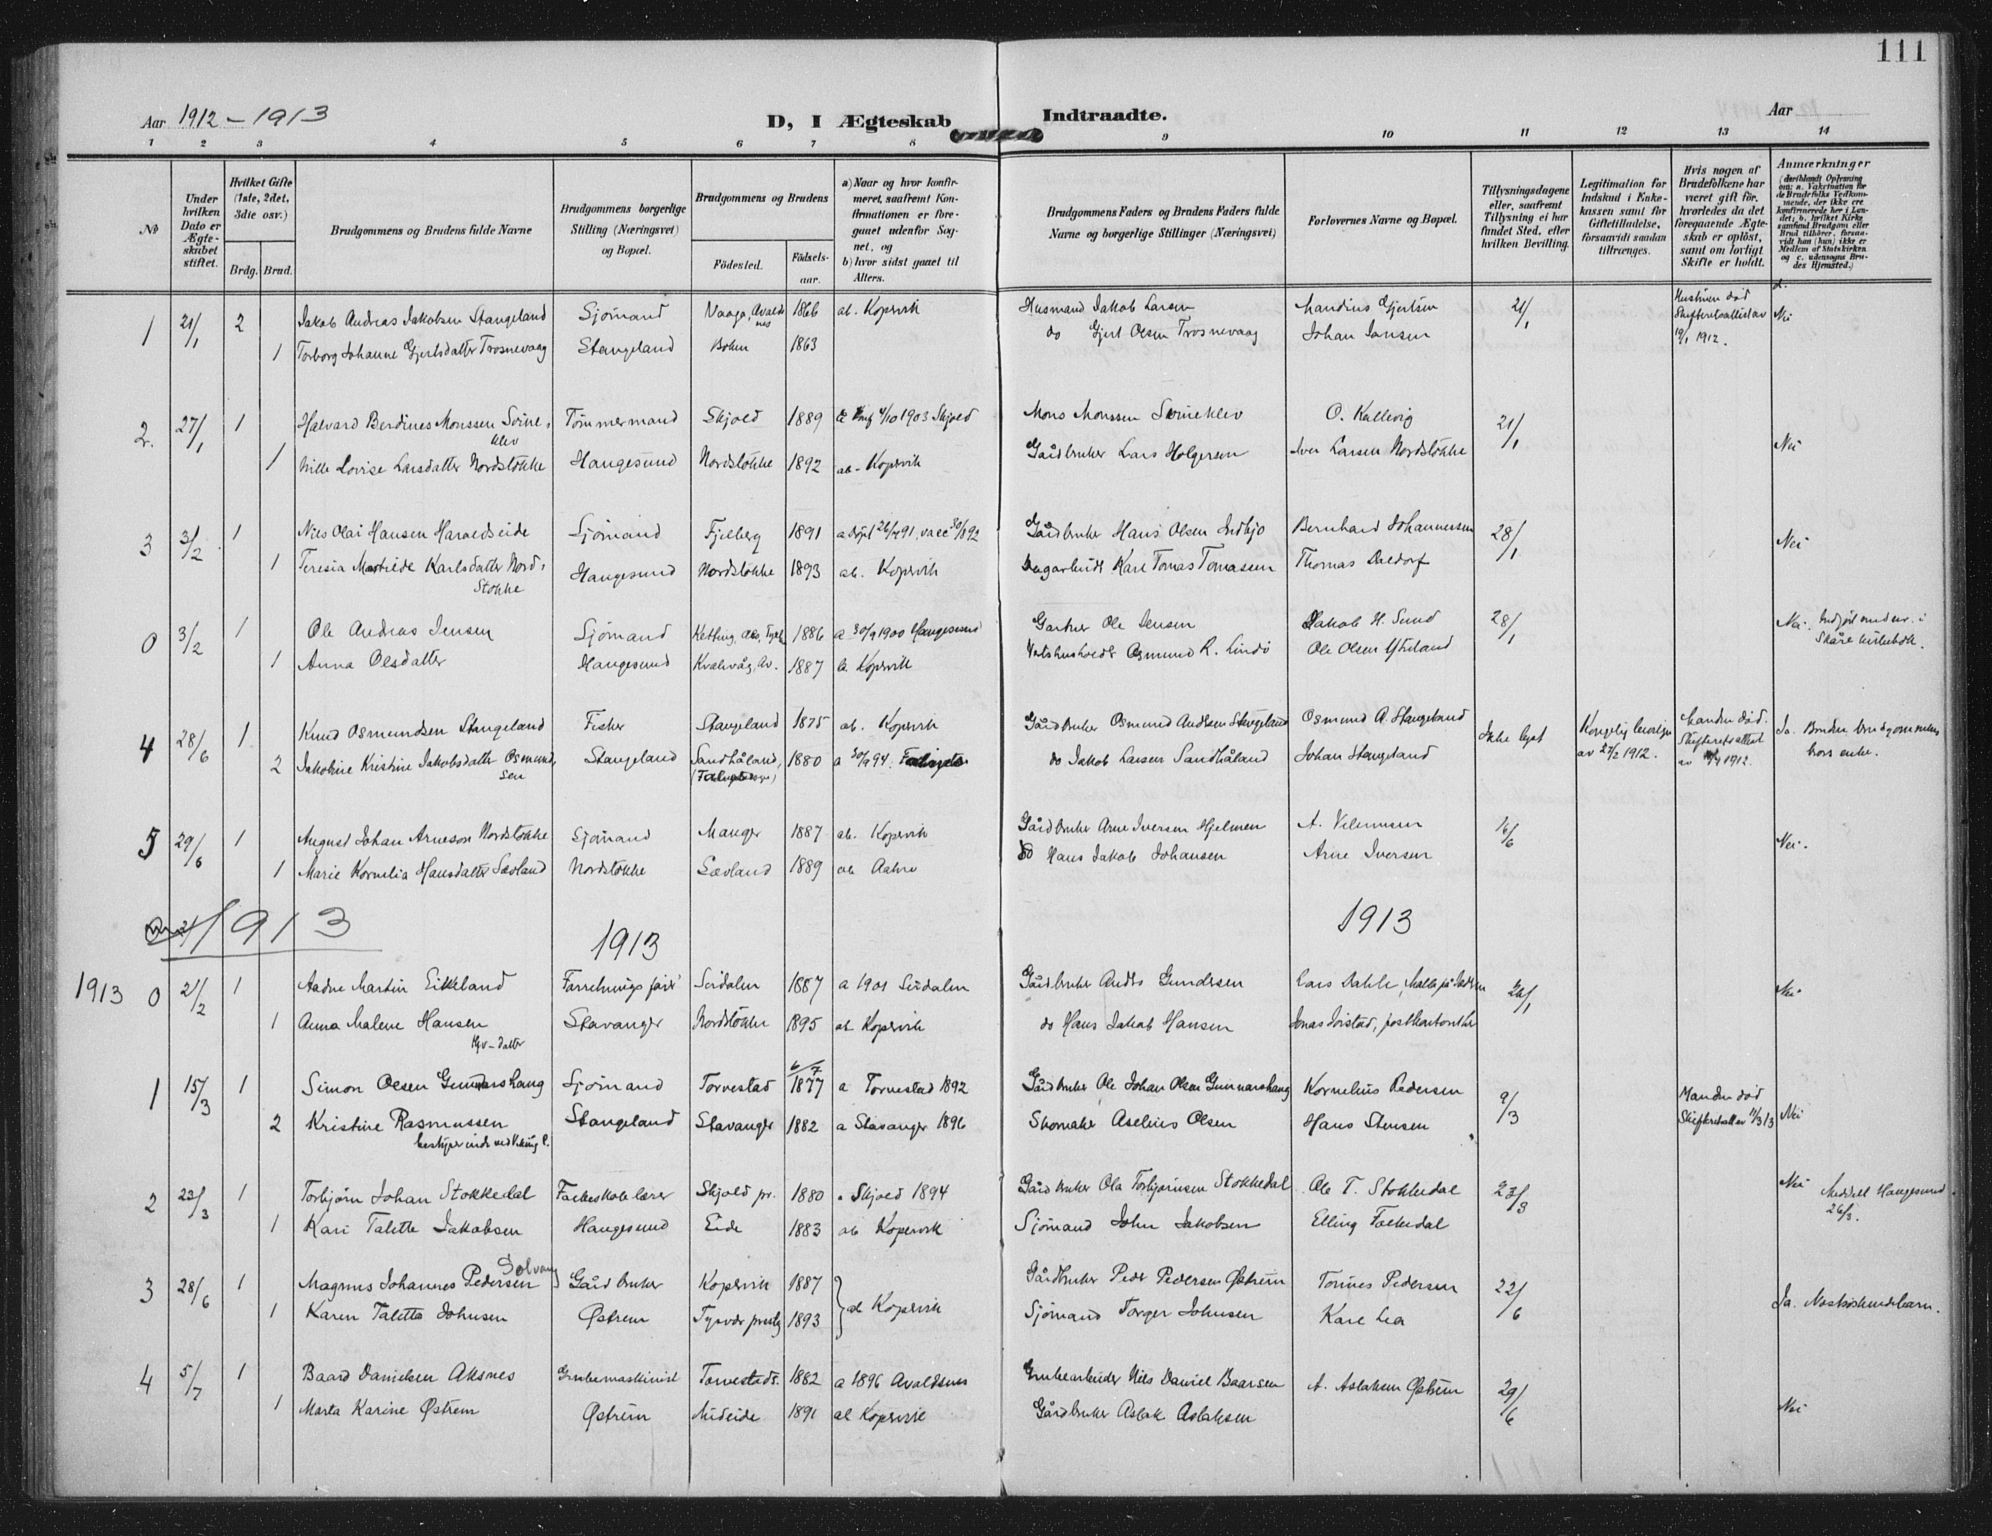 111
Aar 1912 – 1913
D, I Ægteskab Indtraadte.
Aar
1 2 3 4 5 6 7 8 9 10 11 12 13 14
No
Under hvilken Dato er Ægteskabet stiftet.
Hvilket Gifte (1ste, 2det, 3die osv.)
Brdg. Brud.
Brudgommens og Brudens fulde Navne
Brudgommens borgerlige Stilling (Næringsvei) og Bopæl.
Brudgommens og Brudens
Fødested.
Fødsels-aar.
a) Naar og hvor konfirmeret, saafremt Konfirmationen er foregaaet udenfor Sognet, og
b) hvor sidst gaaet til Alters.
Brudgommens Faders og Brudens Faders fulde Navne og borgerlige Stillinger (Næringsvei)
Forlovernes Navne og Bopæl.
Tillysningsdagene eller, saafremt Tillysning ei har fundet Sted, efter hvilken Bevilling.
Legitimation for Indskud i Enkekassen samt for Giftetilladelse, forsaavidt saadan tiltrænges.
Hvis nogen af Brudefolkene har været gift før, hvorledes da det foregaaende Ægteskab er opløst, samt om lovligt Skifte er holdt.
Anmærkninger
1 21/1 2 Jakob Andreas Jakobsen Stangeland Sjømand Vaaga, Avaldsnes 1866 ab. Kopervik Husmand Jakob Larsen Mandius Gjertsen 21/1 Hustruen død Skifteretsattest av 19/1 1912. Nei
1 Torborg Johanne Gjertsdatter Trosnevaag Stangeland Boken 1863 do Gjert Olsen Trosnevaag Johan Jansen
2. 27/1 1 Halvard Berdines Monssen Svineklev Tømmermand Skjold 1889 4/10 1903 Skjold Mons Monssen Svineklev O. Kallevig 21/1 Nei
1 Nille Lovise Larsdatter Nordstokke Haugesund Nordstokke 1892 ab. Kopervik Gårdbruker Lars Holgersen Iver Larsen Nordstokke
3 3/2 1 Nils Olai Hansen Haraldseide Sjømand Fjelberg 1891 a Døpt 26/4 91, vacc 30/9 92 Gårdbruker Hans Olsen Indbjo Bernhard Johannessen 28/1 Nei
1 Teresia Matilde Karlsdatter Nordstokke Haugesund Nordstokke 1893 ab. Kopervik Dagarbeider Karl Tomas Tomassen Thomas Daldorf
0 3/2 1 Ole Andreas Jensen Sjømand Ketting, Als, Tyskl. 1886 a 30/9 1900 Haugesund Gartner Ole Jensen Jakob H. Sund 28/1 Nei. Indført under nr. i Skåre kirkebok.
1 Anna Olsdatter Haugesund Kvalvåg, Av. 1887 ab Kopervik Osmund R. Lindø Ole Olsen Ytreland
4 28/6 1 Knud Osmundsen Stangeland Fisker Stangeland 1875 ab. Kopervik Gårdbruker Osmund Andersen Stangeland Osmund A. Stangeland Ikke lyst Kongelig bevilgn. av 27/2 1912. Manden død. Skifteretsattest av 1912. Ja. Bruden brudgommens brors enke.
2 Jakobine Kristine Jakobsdatter Osmundsen Stangeland Sandhåland, 1880 a 30/9 94 do Jakob Larsen Sandhåland Johan Stangeland
5 29/6 1 August Johan Arneson Nordstokke Sjømand Manger 1887 ab. Kopervik Gårdbruker Arne Iversen Hjelmen A. Velunnsen 16/6 Nei.
1 Marie Kornelia Hansdatter Sævland Nordstokke Sævland 1889 ab Aakra do Hans Jakob Johansen Arne Iversen
1913 1913 1913
1913 0 2/2 1 Aadne Martin Eikeland Forretningsfører Sirdalen 1887 a 1901 Sirdalen Gårdbruker Anders Gundersen Lars Dahle, 26/1 Nei
1 Anna Malene Hansen Stavanger Nordstokke 1895 ab Kopervik do Hans Jakob Hansen Jonas Joistad, postkontorist
1 15/3 1 Simon Olsen Gunnarshaug Sjømand Torvestad 6/7 1877 a Torvestad 1892 Gårdbruker Ole Johan Olsen Gunnarshaug Kornelius Pedersen 9/3 Manden død Skifteretsatt av 11/3 13 Nei
2 Kristine Rasmussen Stangeland Stavanger 1882 a Stavanger 1896 Skomaker Aselius Olsen Hans Stensen
2 23/3 1 Torbjørn Johan Stokkedal Folkeskolelærer Skjold pr. 1880 a Skjold 1894 Gårdbruker Ola Torbjørnsen Stokkedal Ole T. Stokkedal 23/3 Nei Meddelt Haugesund 26/3.
1 Kari Talette Jakobsen Haugesund Eide 1883 ab Kopervik Sjømand John Jakobsen Elling Folkedal
3 28/6 1 Magnus Johannes Pedersen Solvang Gårdbruker Kopervik 1887 ab Kopervik Gårdbruker Peder Pedersen Østrem Tonnes Pedersen 22/6 Ja. Næstsøskendebarn.
1 Karen Talette Johnsen Østrem Tysvær prestg 1893 Sjømand Torger Johnsen Karl Lea
4 5/7 1 Baard Danielsen Aksnes Grubemaskinist Torvestad s. 1882 a 1896 Avaldsnes Grubearbeider Nils Daniel Baarsen A. Aslaksen Østrem 29/6 Nei
1 Marta Karine Østrem Østrem Mideide 1891 ab Kopervik Gårdbruker Aslak Aslaksen